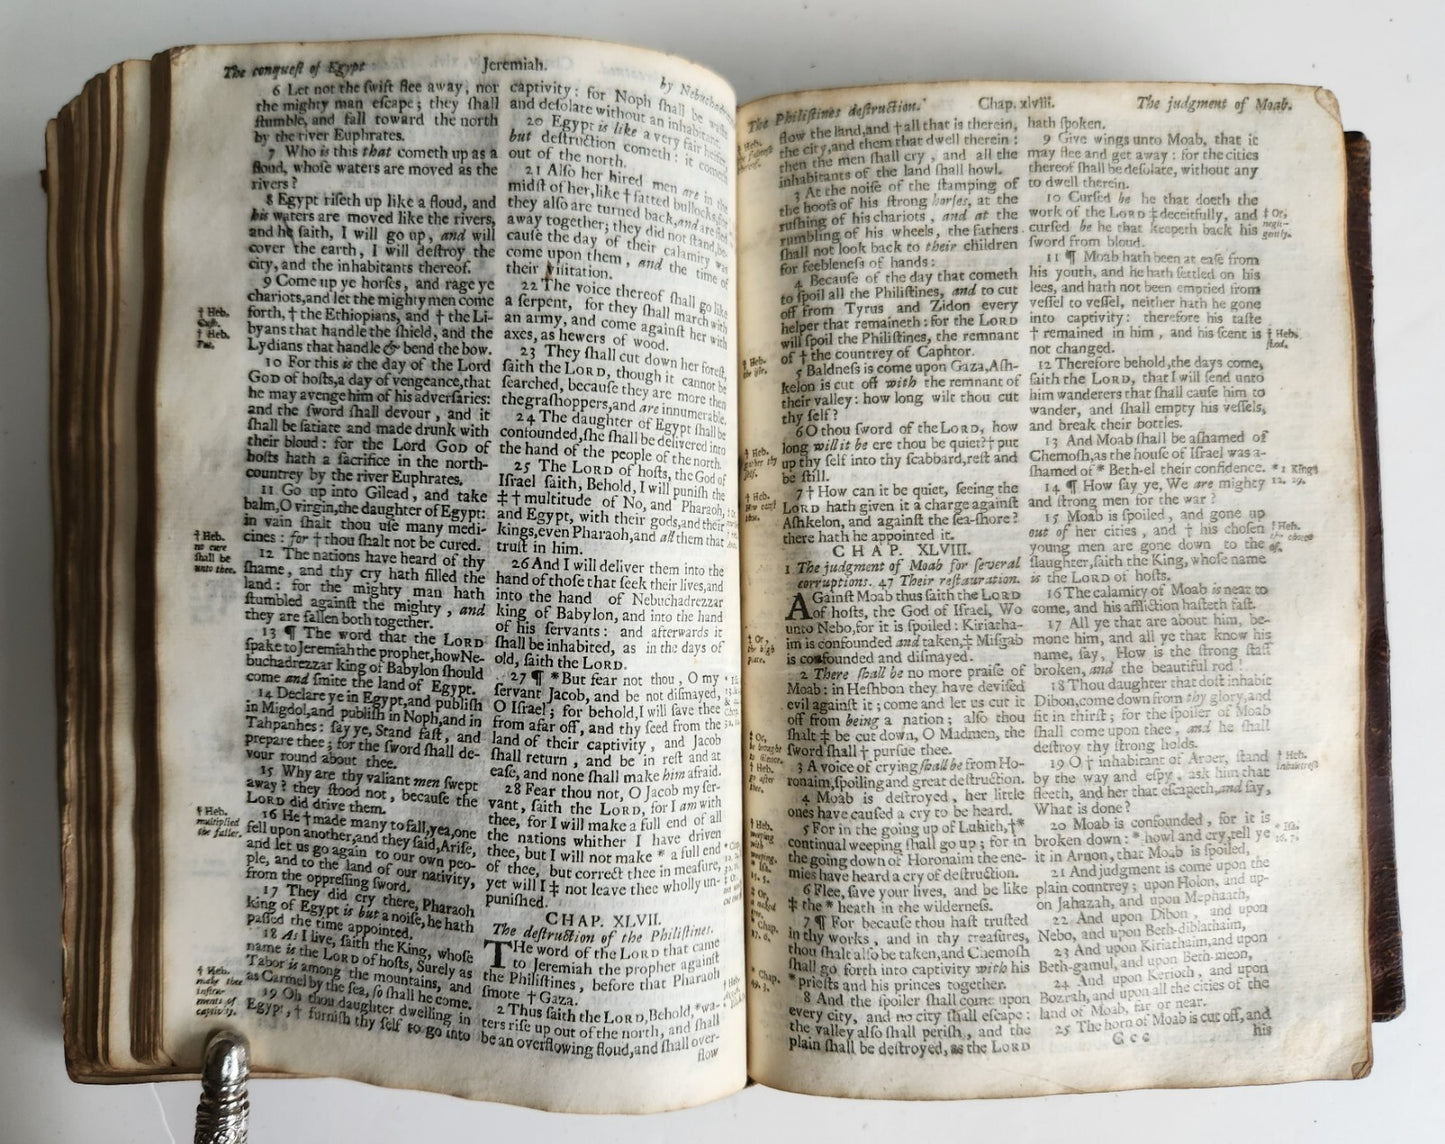 The conqueſt of Egypt
Jeremiah.
by Nebuchad
6 Let not the ſwift flee away, nor
the mighty man eſcape; they ſhall
ſtumble, and fall toward the north
by the river Euphrates.
7 Who is this that cometh up as a
floud, whoſe waters are moved as the
rivers?
8 Egypt riſeth up like a floud, and
his waters are moved like the rivers,
and he ſaith, I will go up, and will
cover the earth, I will deſtroy the
city, and the inhabitants thereof.
9 Come up ye horſes, and rage ye
chariots, and let the mighty men come
forth, † the Ethiopians, and † the Li-
byans that handle the ſhield, and the
Lydians that handle & bend the bow.
10 For this is the day of the Lord
GOD of hoſts, a day of vengeance, that
he may avenge him of his adverſaries:
and the ſword ſhall devour, and it
ſhall be ſatiate and made drunk with
their bloud: for the Lord GOD of
hoſts hath a ſacrifice in the north-
countrey by the river Euphrates.
11 Go up into Gilead, and take
balm, O virgin, the daughter of Egypt:
in vain ſhalt thou uſe many medi-
cines: for † thou ſhalt not be cured.
12 The nations have heard of thy
ſhame, and thy cry hath filled the
land: for the mighty man hath
ſtumbled againſt the mighty, and
they are fallen both together.
13 ¶ The word that the LORD
ſpake to Jeremiah the prophet, how Ne-
buchadrezzar king of Babylon ſhould
come and ſmite the land of Egypt.
14 Declare ye in Egypt, and publiſh
in Migdol, and publiſh in Noph, and in
Tahpanhes: ſay ye, Stand faſt, and
prepare thee; for the ſword ſhall de-
vour round about thee.
15 Why are thy valiant men ſwept
away? they ſtood not, becauſe the
LORD did drive them.
16 He † made many to fall, yea, one
fell upon another, and they ſaid, Ariſe,
and let us go again to our own peo-
ple, and to the land of our nativity,
from the oppreſſing ſword.
17 They did cry there, Pharaoh
king of Egypt is but a noiſe, he hath
paſſed the time appointed.
18 As I live, ſaith the King, whoſe
name is the LORD of hoſts, Surely as
Tabor is among the mountains, and
as Carmel by the ſea, ſo ſhall he come.
19 Oh thou daughter dwelling in
Egypt, † furniſh thy ſelf to go into
† Heb.
Cuſh.
† Heb.
Put.
† Heb.
no cure
ſhall be
unto thee.
† Heb.
multiplied
the faller.
† Heb.
make thee
inſtru-
ments of
captivity.
captivity: for Noph ſhall be waſte
and deſolate without an inhabitant.
20 Egypt is like a very fair heifer,
but deſtruction cometh: it cometh
out of the north.
21 Alſo her hired men are in the
midſt of her, like † fatted bullocks, for
they alſo are turned back, and are fled
away together; they did not ſtand, be-
cauſe the day of their calamity was
come upon them, and the time of
their viſitation.
22 The voice thereof ſhall go like
a ſerpent, for they ſhall march with
an army, and come againſt her with
axes, as hewers of wood.
23 They ſhall cut down her foreſt,
ſaith the LORD, though it cannot be
ſearched, becauſe they are more then
the graſhoppers, and are innumerable.
24 The daughter of Egypt ſhall be
confounded, ſhe ſhall be delivered into
the hand of the people of the north.
25 The LORD of hoſts, the God of
Iſrael ſaith, Behold, I will puniſh the
‡ † multitude of No, and Pharaoh,
and Egypt, with their gods, and their
kings, even Pharaoh, and all them that
truſt in him.
26 And I will deliver them into the
hand of thoſe that ſeek their lives, and
into the hand of Nebuchadrezzar
king of Babylon, and into the hand
of his ſervants: and afterwards it
ſhall be inhabited, as in the days of
old, ſaith the LORD.
27 ¶ * But fear not thou, O my
ſervant Jacob, and be not diſmayed,
O Iſrael; for behold, I will ſave thee
from afar off, and thy ſeed from the
land of their captivity, and Jacob
ſhall return, and be in reſt and at
eaſe, and none ſhall make him afraid.
28 Fear thou not, O Jacob my ſer-
vant, ſaith the LORD, for I am with
thee, for I will make a full end of all
the nations whither I have driven
thee, but I will not make * a full end
of thee, but correct thee in meaſure,
yet will I ‡ not leave thee wholly un-
puniſhed.
CHAP. XLVII.
The deſtruction of the Philiſtines.
THe word of the LORD that came
to Jeremiah the prophet againſt
the Philiſtines, before that Pharaoh
ſmote † Gaza.
2 Thus ſaith the LORD, Behold, * wa-
ters riſe up out of the north, and ſhall
be an overflowing floud, and ſhall over-
flow
The Philiſtines deſtruction.
Chap. xlviii.
The judgment of Moab.
flow the land, and † all that is therein,
the city, and them that dwell therein:
then the men ſhall cry, and all the
inhabitants of the land ſhall howl.
3 At the noiſe of the ſtamping of
the hoofs of his ſtrong horſes, at the
ruſhing of his chariots, and at the
rumbling of his wheels, the fathers
ſhall not look back to their children
for feebleneſs of hands:
4 Becauſe of the day that cometh
to ſpoil all the Philiſtines, and to cut
off from Tyrus and Zidon every
helper that remaineth: for the LORD
will ſpoil the Philiſtines, the remnant
of † the countrey of Caphtor.
5 Baldneſs is come upon Gaza, Aſh-
kelon is cut off with the remnant of
their valley: how long wilt thou cut
thy ſelf?
6 O thou ſword of the LORD, how
long will it be ere thou be quiet? † put
up thy ſelf into thy ſcabbard, reſt and
be ſtill.
7 † How can it be quiet, ſeeing the
LORD hath given it a charge againſt
Aſhkelon, and againſt the ſea-ſhore?
there hath he appointed it.
CHAP. XLVIII.
1 The judgment of Moab for ſeveral
corruptions. 47 Their reſtauration.
AGainſt Moab thus ſaith the LORD
of hoſts, the God of Iſrael, Wo
unto Nebo, for it is ſpoiled: Kiriatha-
im is confounded and taken, ‡ Miſgab
is confounded and diſmayed.
2 There ſhall be no more praiſe of
Moab: in Heſhbon they have deviſed
evil againſt it; come and let us cut it
off from being a nation; alſo thou
ſhalt ‡ be cut down, O Madmen, the
ſword ſhall † purſue thee.
3 A voice of crying ſhall be from Ho-
ronaim, ſpoiling and great deſtruction.
4 Moab is deſtroyed, her little
ones have cauſed a cry to be heard.
5 For in the going up of Luhith, † *
continual weeping ſhall go up; for in
the going down of Horonaim the ene-
mies have heard a cry of deſtruction.
6 Flee, ſave your lives, and be like
‡ the * heath in the wilderneſs.
7 ¶ For becauſe thou haſt truſted
in thy works, and in thy treaſures,
thou ſhalt alſo be taken, and Chemoſh
ſhall go forth into captivity with his
* prieſts and his princes together.
8 And the ſpoiler ſhall come upon
every city, and no city ſhall eſcape:
the valley alſo ſhall periſh, and the
plain ſhall be deſtroyed, as the LORD
† Heb.
† Heb.
the iſle.
† Heb.
† Heb.
‡ Or,
the high
place.
‡ Or,
† Heb.
go after
thee.
† Heb.
weeping
with
weeping.
‡ Or,
* Chap.
* Chap.
49. 3.
hath ſpoken.
9 Give wings unto Moab, that it
may flee and get away: for the cities
thereof ſhall be deſolate, without any
to dwell therein.
10 Curſed be he that doeth the
work of the LORD ‡ deceitfully, and
curſed be he that keepeth back his
ſword from bloud.
11 ¶ Moab hath been at eaſe from
his youth, and he hath ſettled on his
lees, and hath not been emptied from
veſſel to veſſel, neither hath he gone
into captivity: therefore his taſte
† remained in him, and his ſcent is
not changed.
12 Therefore behold, the days come,
ſaith the LORD, that I will ſend unto
him wanderers that ſhall cauſe him to
wander, and ſhall empty his veſſels,
and break their bottles.
13 And Moab ſhall be aſhamed of
Chemoſh, as the houſe of Iſrael was a-
ſhamed of * Beth-el their confidence.
14 ¶ How ſay ye, We are mighty
and ſtrong men for the war?
15 Moab is ſpoiled, and gone up
out of her cities, and † his choſen
young men are gone down to the
ſlaughter, ſaith the King, whoſe name
is the LORD of hoſts.
16 The calamity of Moab is near to
come, and his affliction haſteth faſt.
17 All ye that are about him, be-
mone him, and all ye that know his
name, ſay, How is the ſtrong ſtaff
broken, and the beautiful rod!
18 Thou daughter that doſt inhabit
Dibon, come down from thy glory, and
ſit in thirſt; for the ſpoiler of Moab
ſhall come upon thee, and he ſhall
deſtroy thy ſtrong holds.
19 O † inhabitant of Aroer, ſtand
by the way and eſpy, ask him that
fleeth, and her that eſcapeth, and ſay,
What is done?
20 Moab is confounded, for it is
broken down: * howl and cry, tell ye
it in Arnon, that Moab is ſpoiled,
21 And judgment is come upon the
plain countrey; upon Holon, and up-
on Jahazah, and upon Mephaath,
22 And upon Dibon, and upon
Nebo, and upon Beth-diblathaim,
23 And upon Kiriathaim, and upon
Beth-gamul, and upon Beth-meon,
24 And upon Kerioth, and upon
Bozrah, and upon all the cities of the
land of Moab, far or near.
25 The horn of Moab is cut off, and
Ccc
his
‡ Or,
negli-
gently.
† Heb.
ſtood.
* 1 Kings
12. 29.
† Heb.
the choice
of.
† Heb.
inhabitreſs
* Iſa.
16. 7.